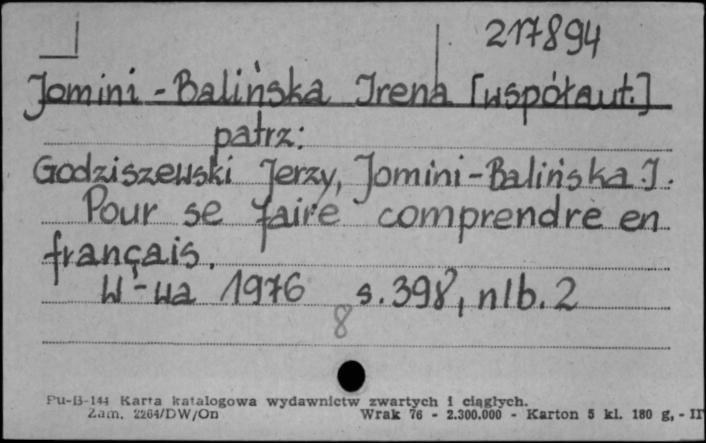 217894
Jomini-Balińska Irena [współaut.]
patrz:
Godziszewski Jerzy, Jomini-Balińska J.
Pour se faire comprendre en
français.
W-wa 1976 s.398, nlb.2
8
Pu-B-144 Karta katalogowa wydawnictw zwartych i ciągłych.
Zam. 2264/DW/On Wrak 76 - 2.300.000 - Karton 5 kl. 180 g, - II